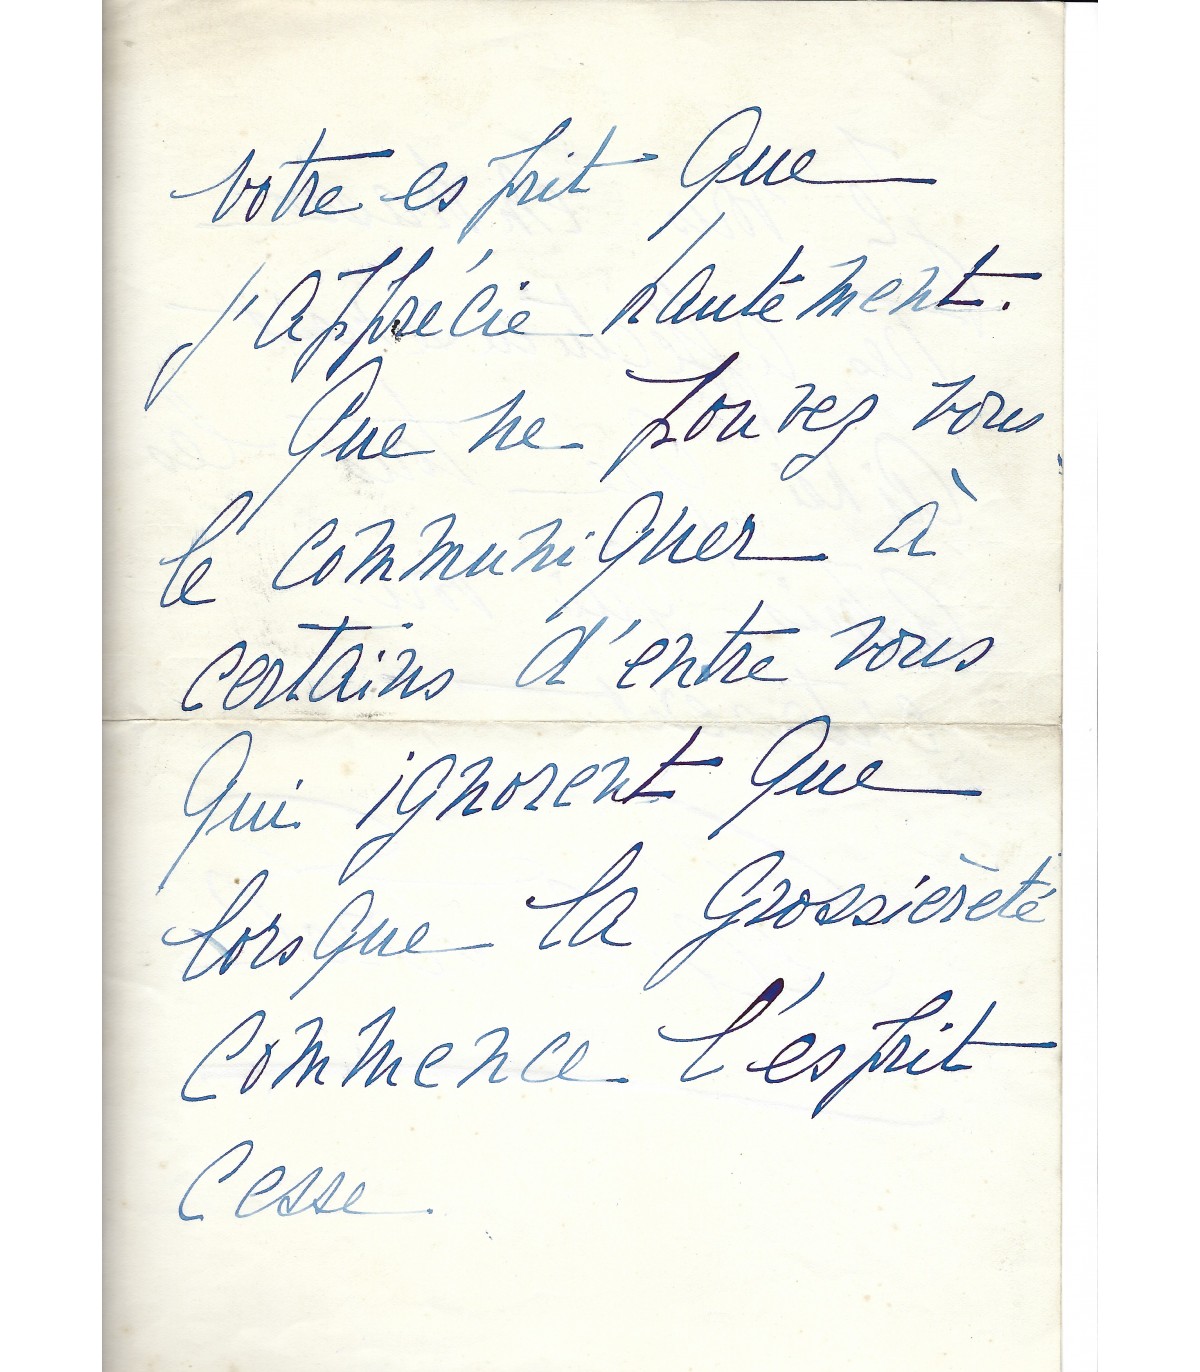 votre esprit que
j'apprécie hautement.
Que ne pouvez vous
le communiquer à
certains d'entre vous
qui ignorent que
lorsque la grossièreté
commence l'esprit
cesse.